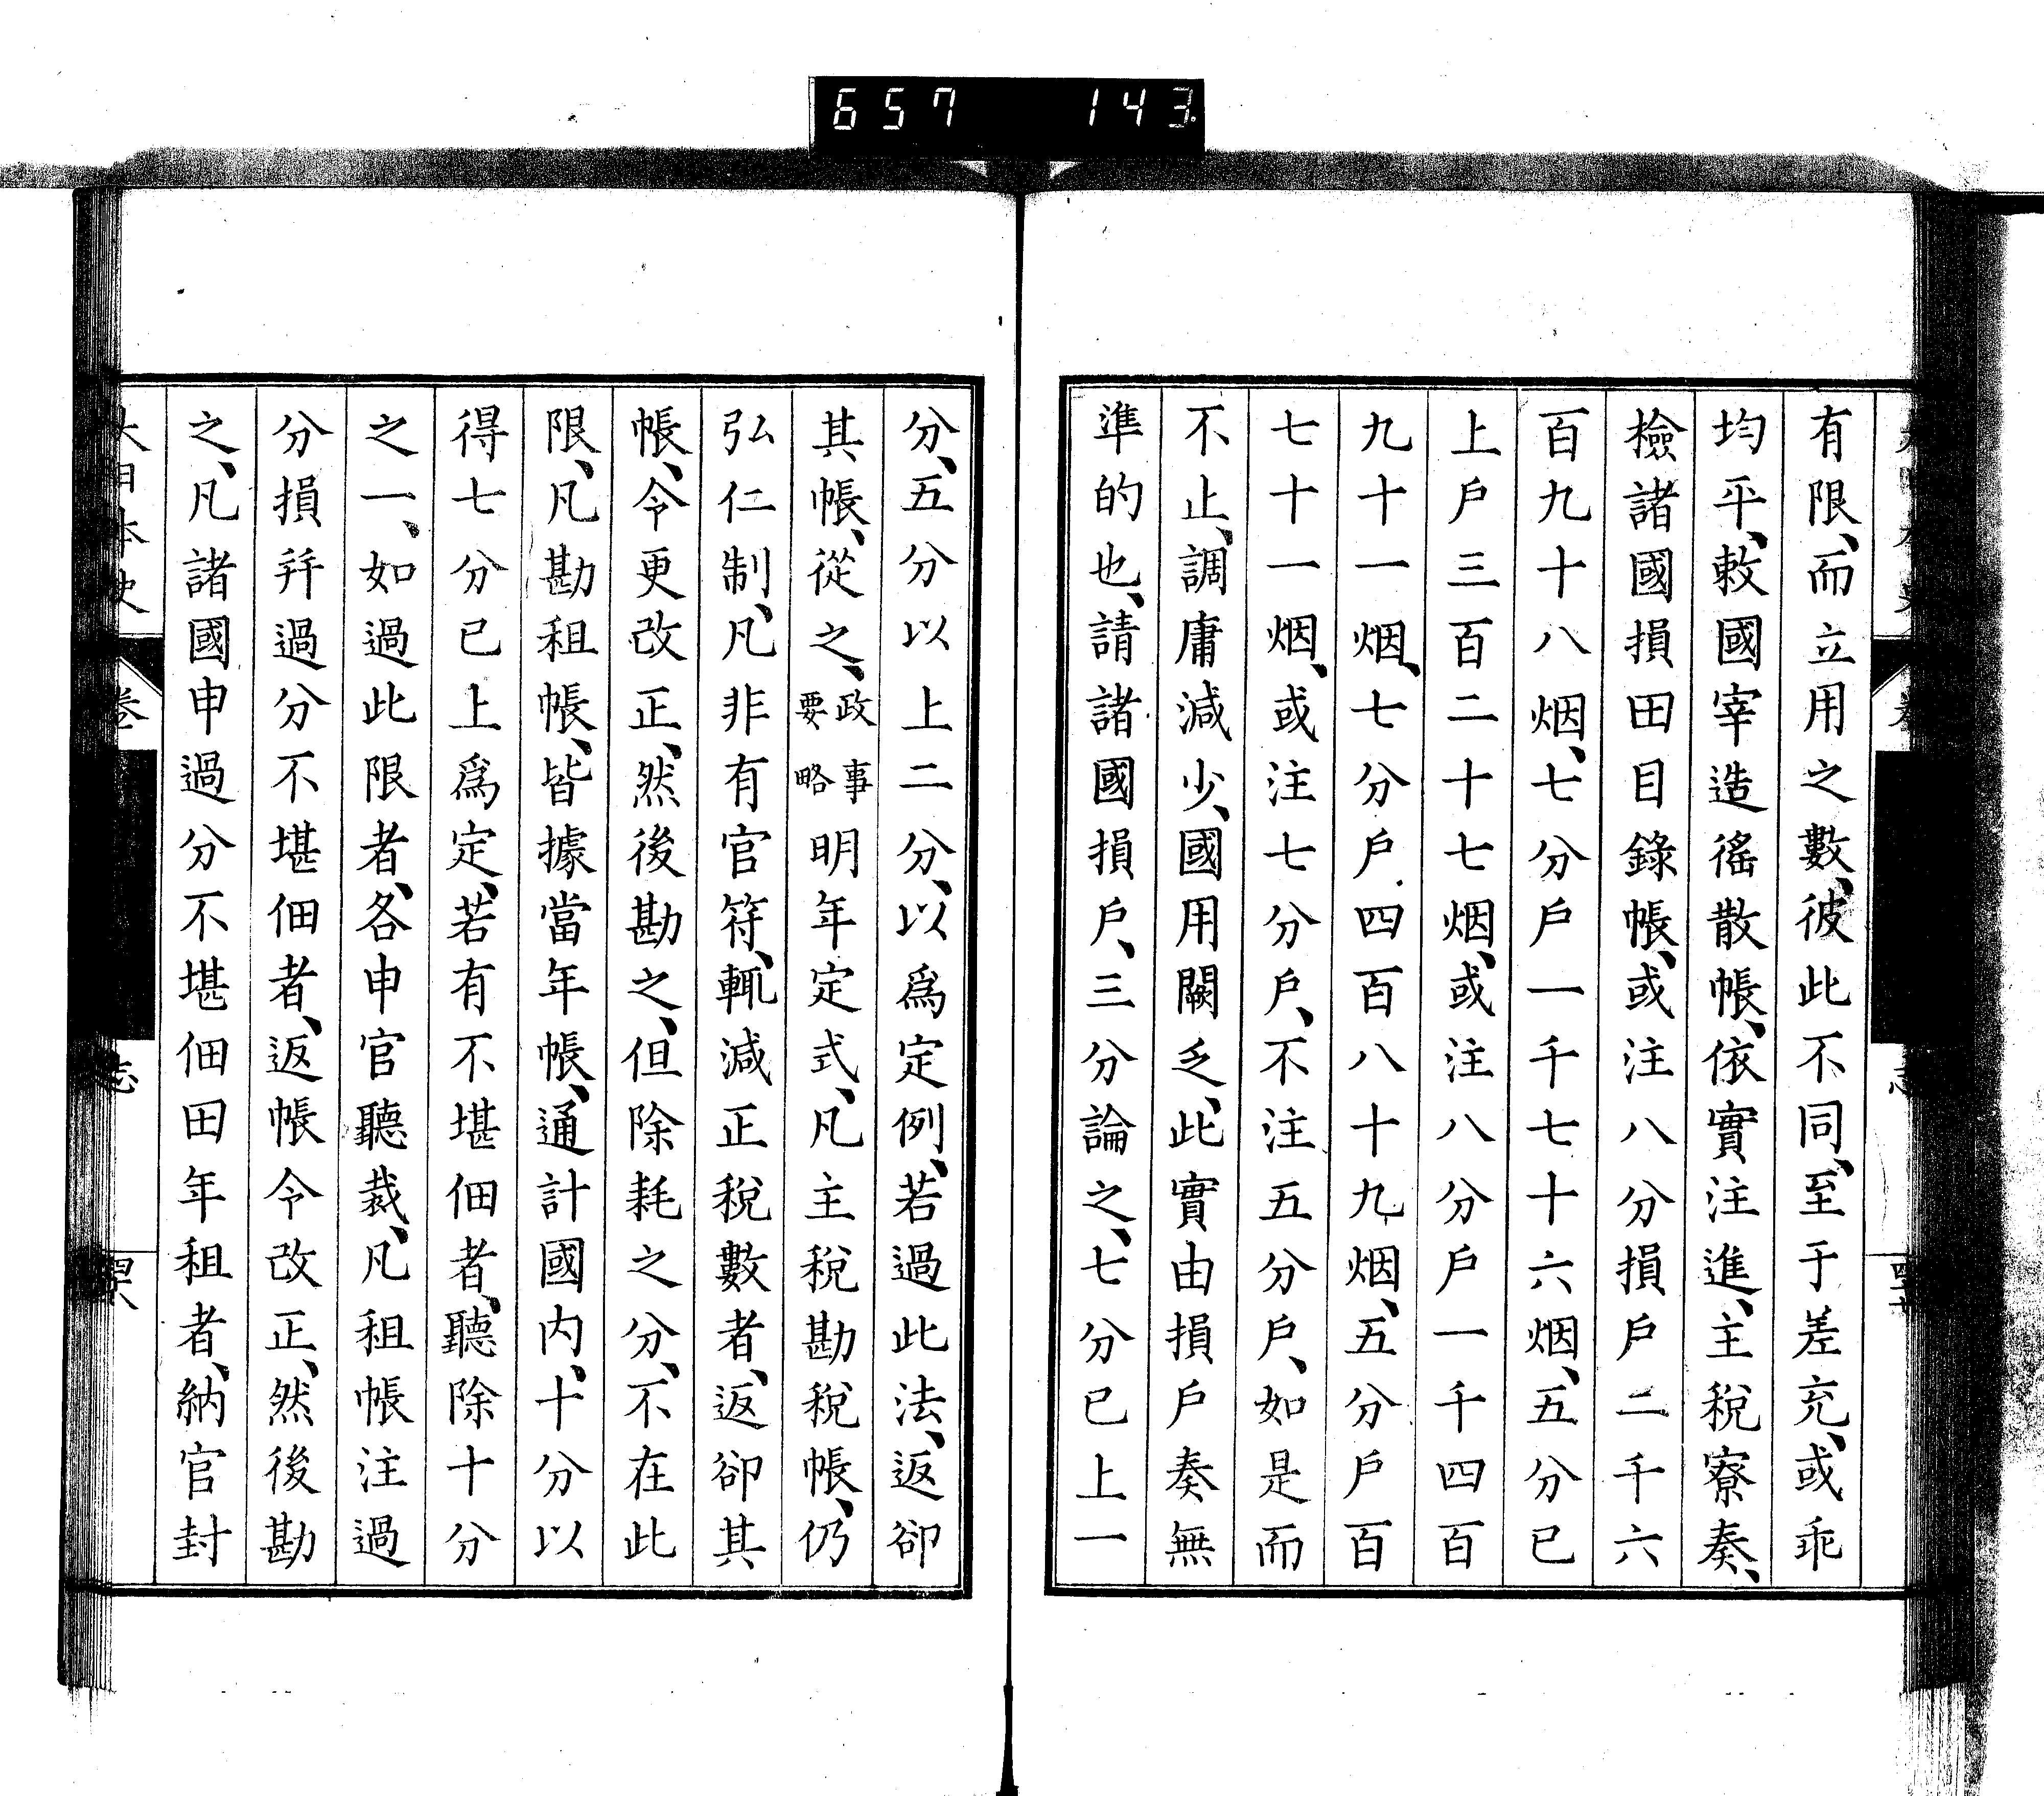 657 143
有限、而立用之數、彼此不同、至于差充、或乖
均平、敕國宰造徭散帳、依實注進、主稅寮奏、
檢諸國損田目錄帳、或注八分損戶二千六
百九十八烟、七分戶一千七十六烟、五分已
上戶三百二十七烟、或注八分戶一千四百
九十一烟、七分戶四百八十九烟、五分戶百
七十一烟、或注七分戶、不注五分戶、如是而
不止、調庸減少、國用闕乏、此實由損戶奏無
準的也、請諸國損戶、三分論之、七分已上一
分、五分以上二分、以爲定例、若過此法、返卻
其帳、從之、政事要略明年定式、凡主稅勘稅帳、仍
弘仁制、凡非有官符、輒減正稅數者、返卻其
帳、令更改正、然後勘之、但除耗之分、不在此
限、凡勘租帳、皆據當年帳、通計國内、十分以
得七分已上爲定、若有不堪佃者、聽除十分
之一、如過此限者、各申官聽裁、凡租帳注過
分損幷過分不堪佃者、返帳令改正、然後勘
之、凡諸國申過分不堪佃田年租者、納官封
大日本史 卷 志 四八